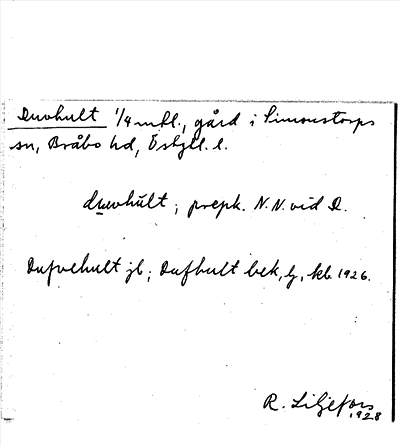 Duvhult 1/4 mtl., gård i Simonstorps
sn, Bråbo hd, Östgll. l.
duvhult, prepk. N.N. vid D.
Dufvehult jb; Dufhult bek, lj, kb 1926.
R. Liljefors
1928